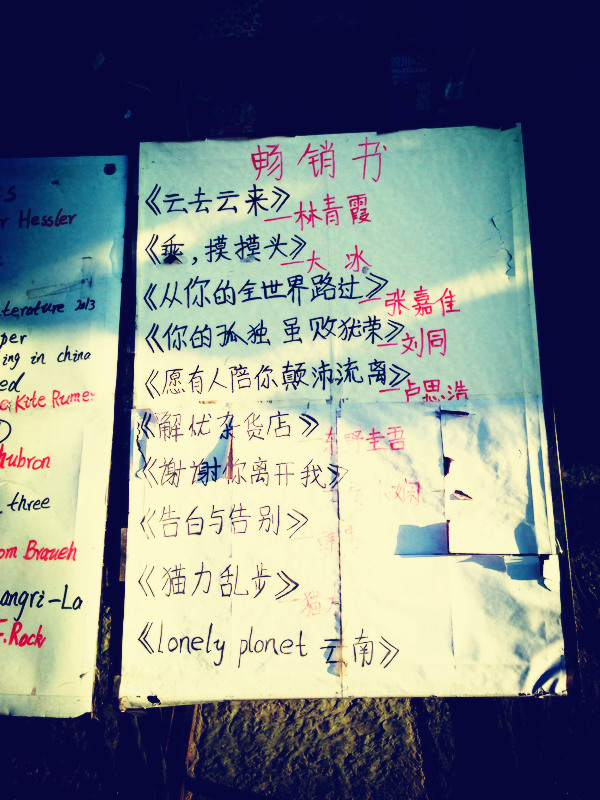 r Hessler
terature 2013
per
ing in china
ed
Kite Rume
hubron
three
om Braueh
angri-La
F.Rock
畅销书
《云去云来》
—林青霞
《乖,摸摸头》
—大冰
《从你的全世界路过》
—张嘉佳
《你的孤独 虽败犹荣》
—刘同
《愿有人陪你颠沛流离》
—卢思浩
《解忧杂货店》
—东野圭吾
《谢谢你离开我》
小娴
《告白与告别》
《猫力乱步》
—猫
《lonely plonet 云南》